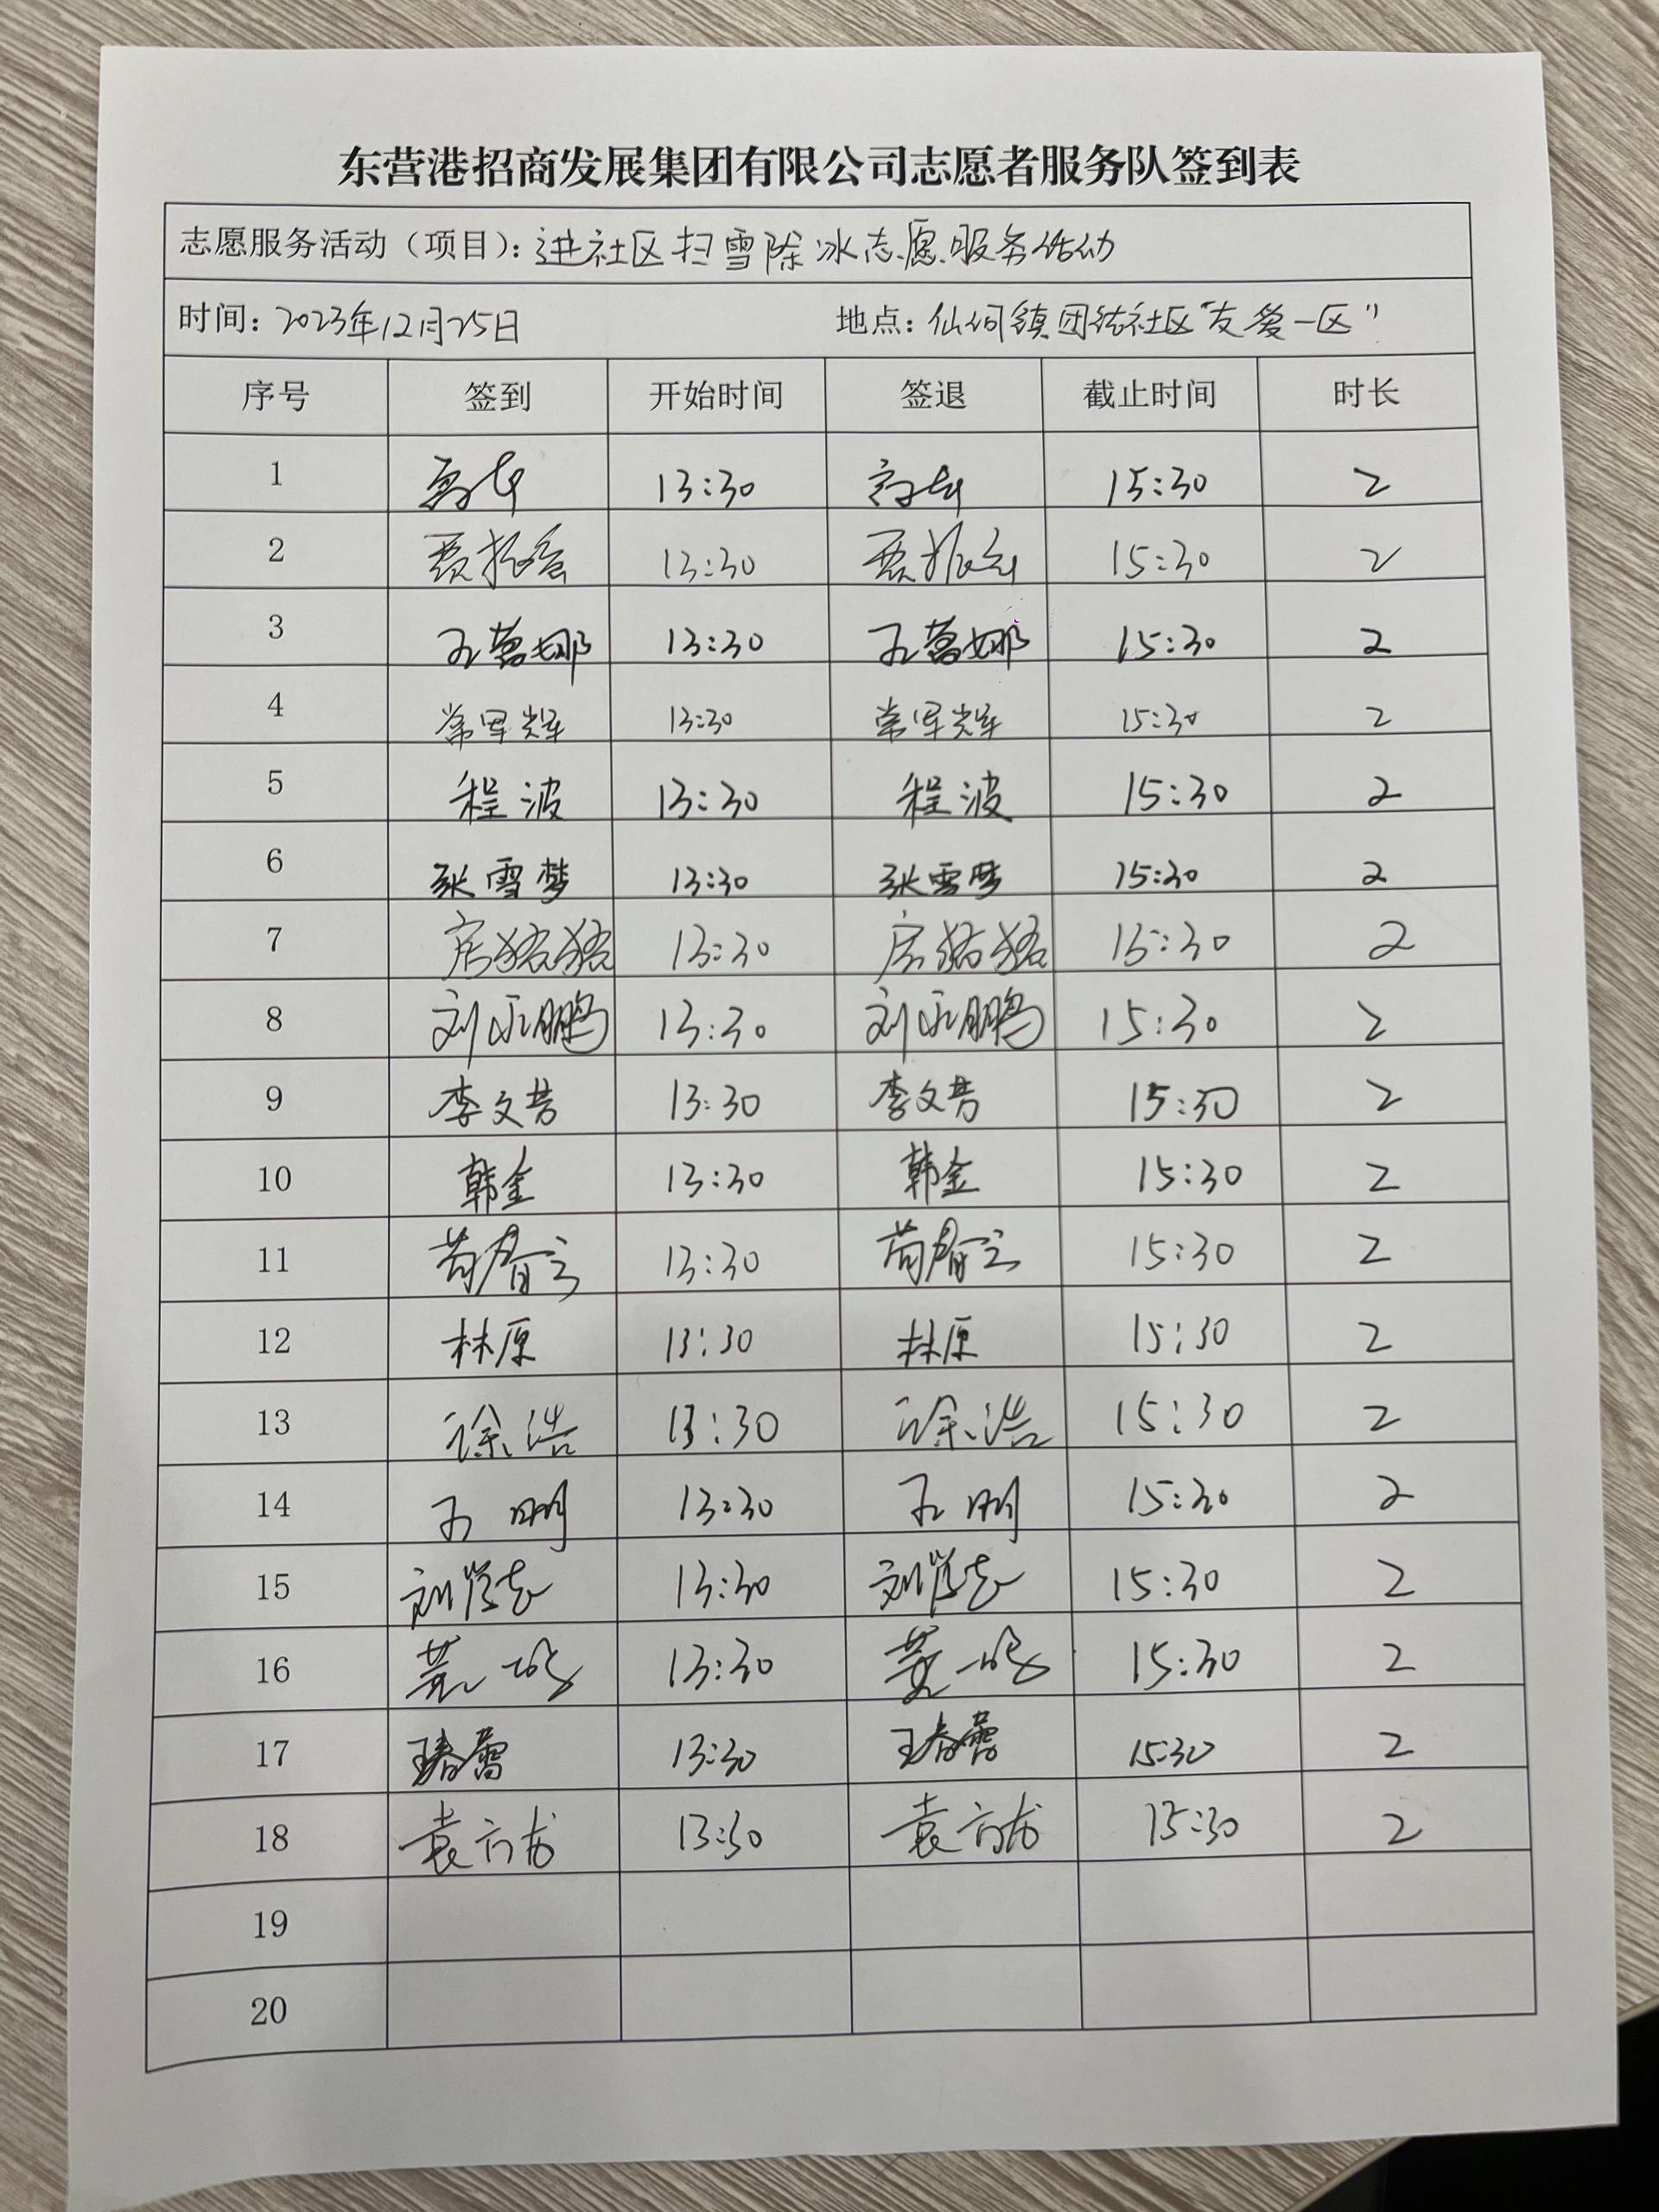 东营港招商发展集团有限公司志愿者服务队签到表
志愿服务活动（项目）：进社区扫雪除冰志愿服务活动
时间：2023年12月25日 地点：仙河镇团结社区“友爱一区”
序号 签到 开始时间 签退 截止时间 时长
1 13:30 15:30 2
2 13:30 15:30 2
3 13:30 15:30 2
4 常军辉 13:30 常军辉 15:30 2
5 程波 13:30 程波 15:30 2
6 张雪梦 13:30 张雪梦 15:30 2
7 13:30 15:30 2
8 刘永鹏 13:30 刘永鹏 15:30 2
9 李文芳 13:30 李文芳 15:30 2
10 韩金 13:30 韩金 15:30 2
11 13:30 15:30 2
12 林原 13:30 林原 15:30 2
13 徐浩 13:30 徐浩 15:30 2
14 13:30 15:30 2
15 13:30 15:30 2
16 13:30 15:30 2
17 王春蕾 13:30 王春蕾 15:30 2
18 袁方龙 13:30 袁方龙 15:30 2
19
20